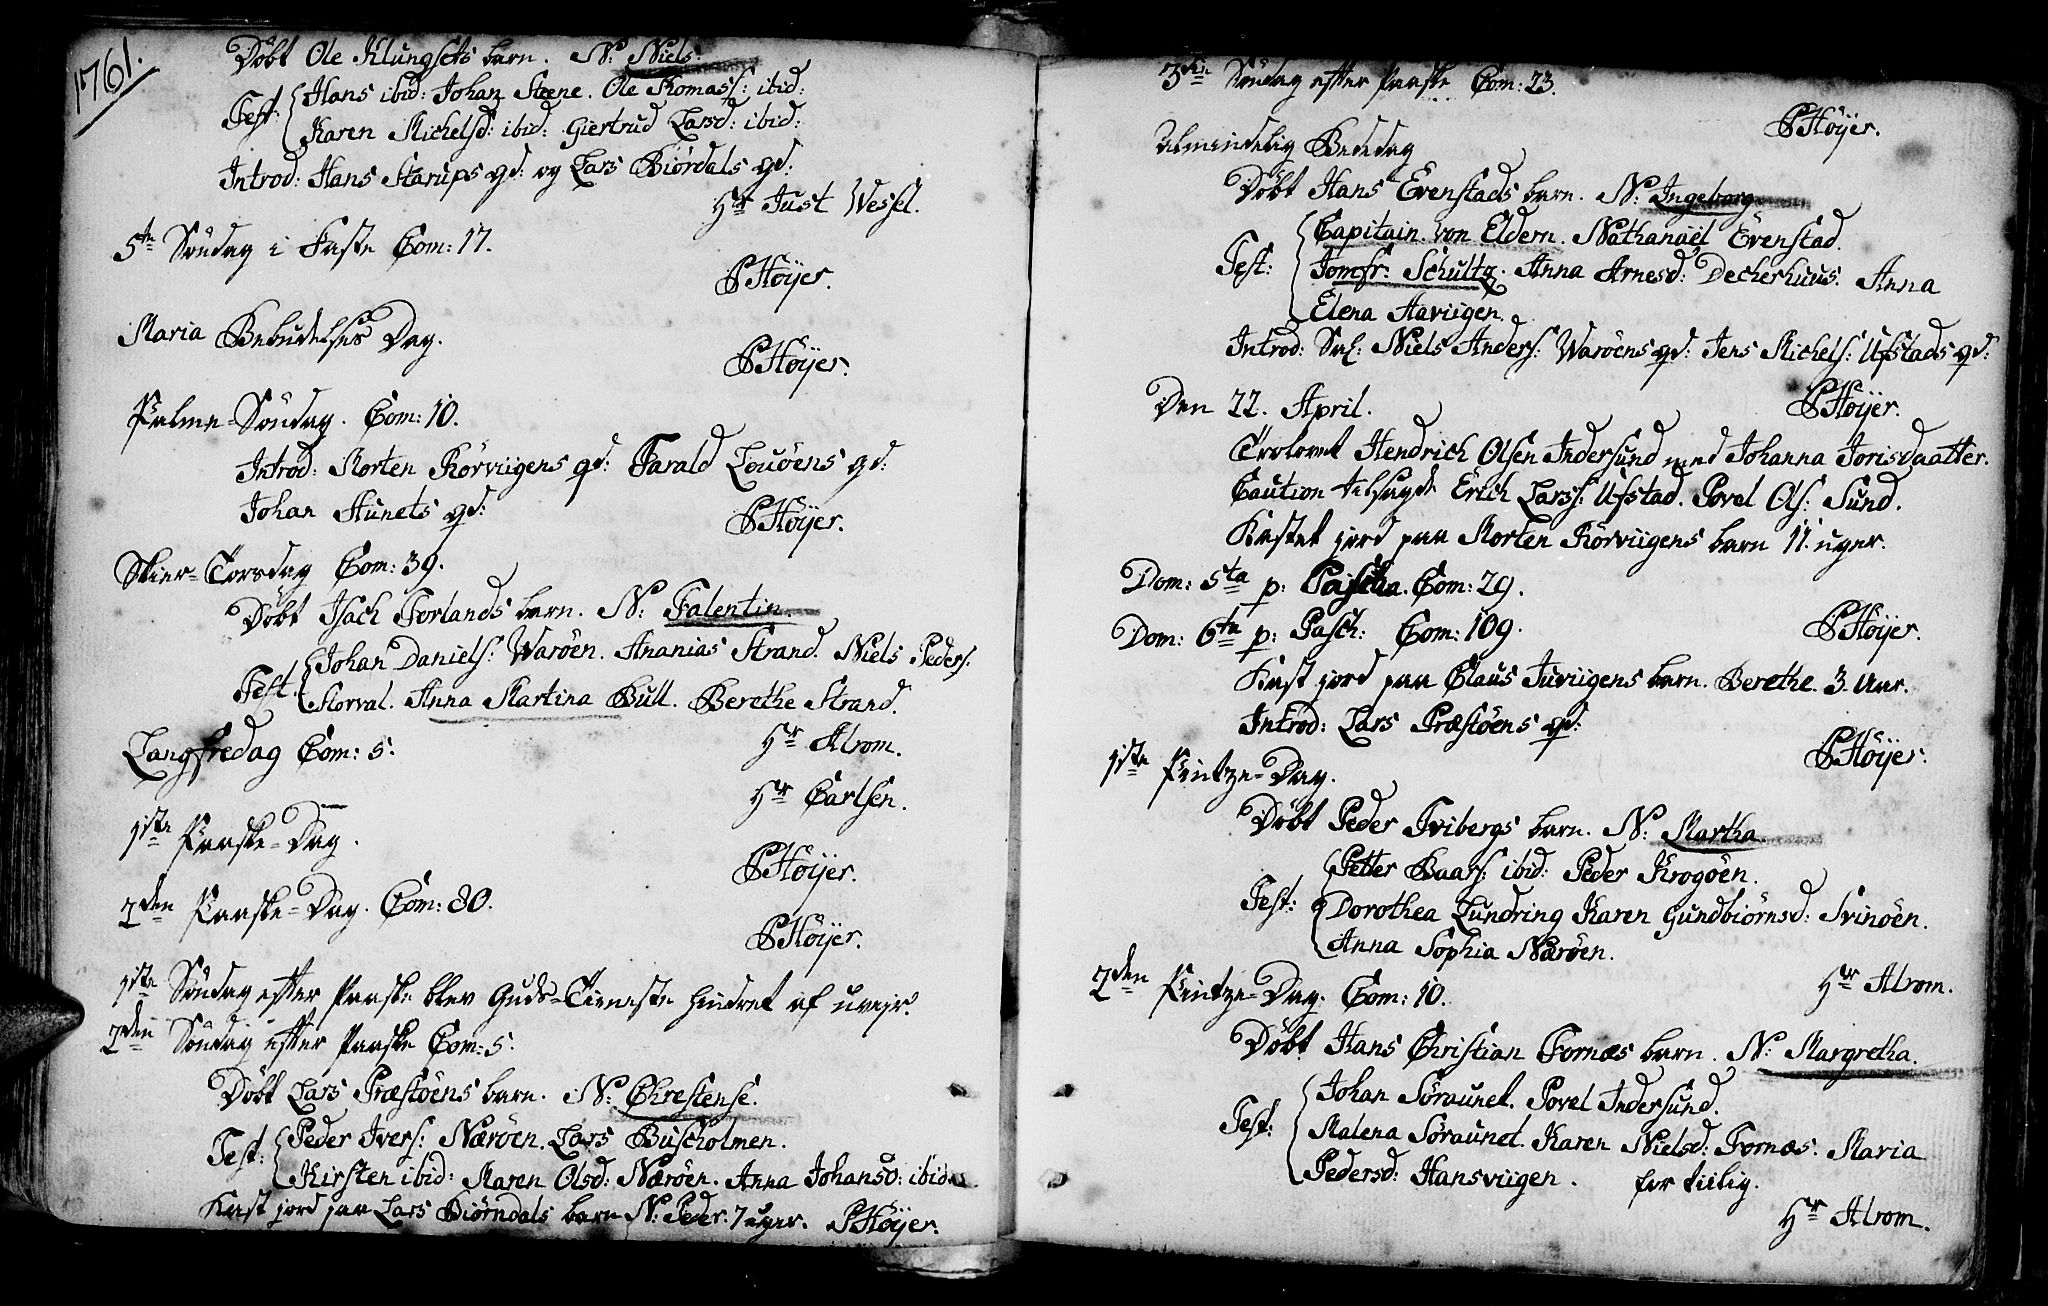 1761.
Döbt Ole Klungsets barn. N: Niels.
Test: Hans ibid: Johan Steene. Ole Thomass: ibid:
Karen Michelsd: ibid: Giertrud Larsd: ibid:
Introd: Hans Starups qd: og Lars Biördals qd:
Hr Just Wessel.
5te Söndag i Faste Com: 17.
PHöyer.
Maria Bebudelses Dag.
PHöyer.
Palme-Söndag. Com: 10.
Introd: Morten Rörviigens qd: Farald Louöens qd:
Johan Aunets qd:
PHöyer.
Skier-Torsdag Com: 39.
Döbt Isach Forlands barn. N: Falentin.
Test. Johan Daniels: Waröen. Ananias Strand. Niels Peders:
Horval. Anna Martina Bull. Berethe Strand.
Hr Alrom.
Langfredag Com: 5.
Hr Carlsen.
1ste Paaske-Dag.
PHöyer.
2den Paaske-Dag. Com: 80.
PHöyer.
1ste Söndag efter Paaske blev Guds-Tieneste hindret af uveyr.
2den Söndag efter Paaske Com: 5.
Döbt Lars Præstöens barn. N: Chrestense.
Test: Peder Ivers: Næröen. Lars Buschholmen.
Kirsten ibid: Maren Olsd: Næröen. Anna Johansd: ibid.
Kast jord paa Lars Biörndals barn N: Peder. 7 uger. PHöyer.
3die Söndag efter Paaske Com: 23.
PHöyer.
Almindelig Bededag
Döbt Hans Evenstads barn. N: Ingeborg
Test: Capitain von Eldern. Nathanaël Evenstad.
Jomfr: Schultz. Anna Arnesd: Deckerhuus. Anna
Elena Aaviigen.
Introd: Sal: Niels Anders: Waröens qd: Jens Michels: Ufstads qd:
PHöyer.
Den 22. April.
Trolovet Hendrich Olsen Indersund med Johanna Jorisdaatter.
Caution tilsagde Erich Larss: Ufstad. Povel Ols: Sund.
Kastet jord paa Morten Rörviigens barn 11. uger.
Dom: 5ta p: Pascha. Com: 29.
PHöyer.
Dom: 6ta p: Pasch: Com: 109.
Kast jord paa Claus Juviigens barn. Berethe. 3. Aar.
Introd: Lars Præstöens qd:
PHöyer.
1ste Pintze-Dag.
Döbt Peder Tvibergs barn. N: Martha.
Test: Petter Baars: ibid: Peder Krogöen.
Dorothea Lundring Karen Gundbiörnsd: Svinöen.
Anna Sophia Næröen.
Hr Alrom.
2den Pintze-Dag. Com: 10.
Döbt Hans Christian Fornæs barn. N: Margretha.
Test: Johan Söraunet. Povel Indersund.
Malena Söraunet. Karen Nielsd: Fornæs. Maria
Pedersd: Hansviigen. for tiilig.
Hr Alrom.